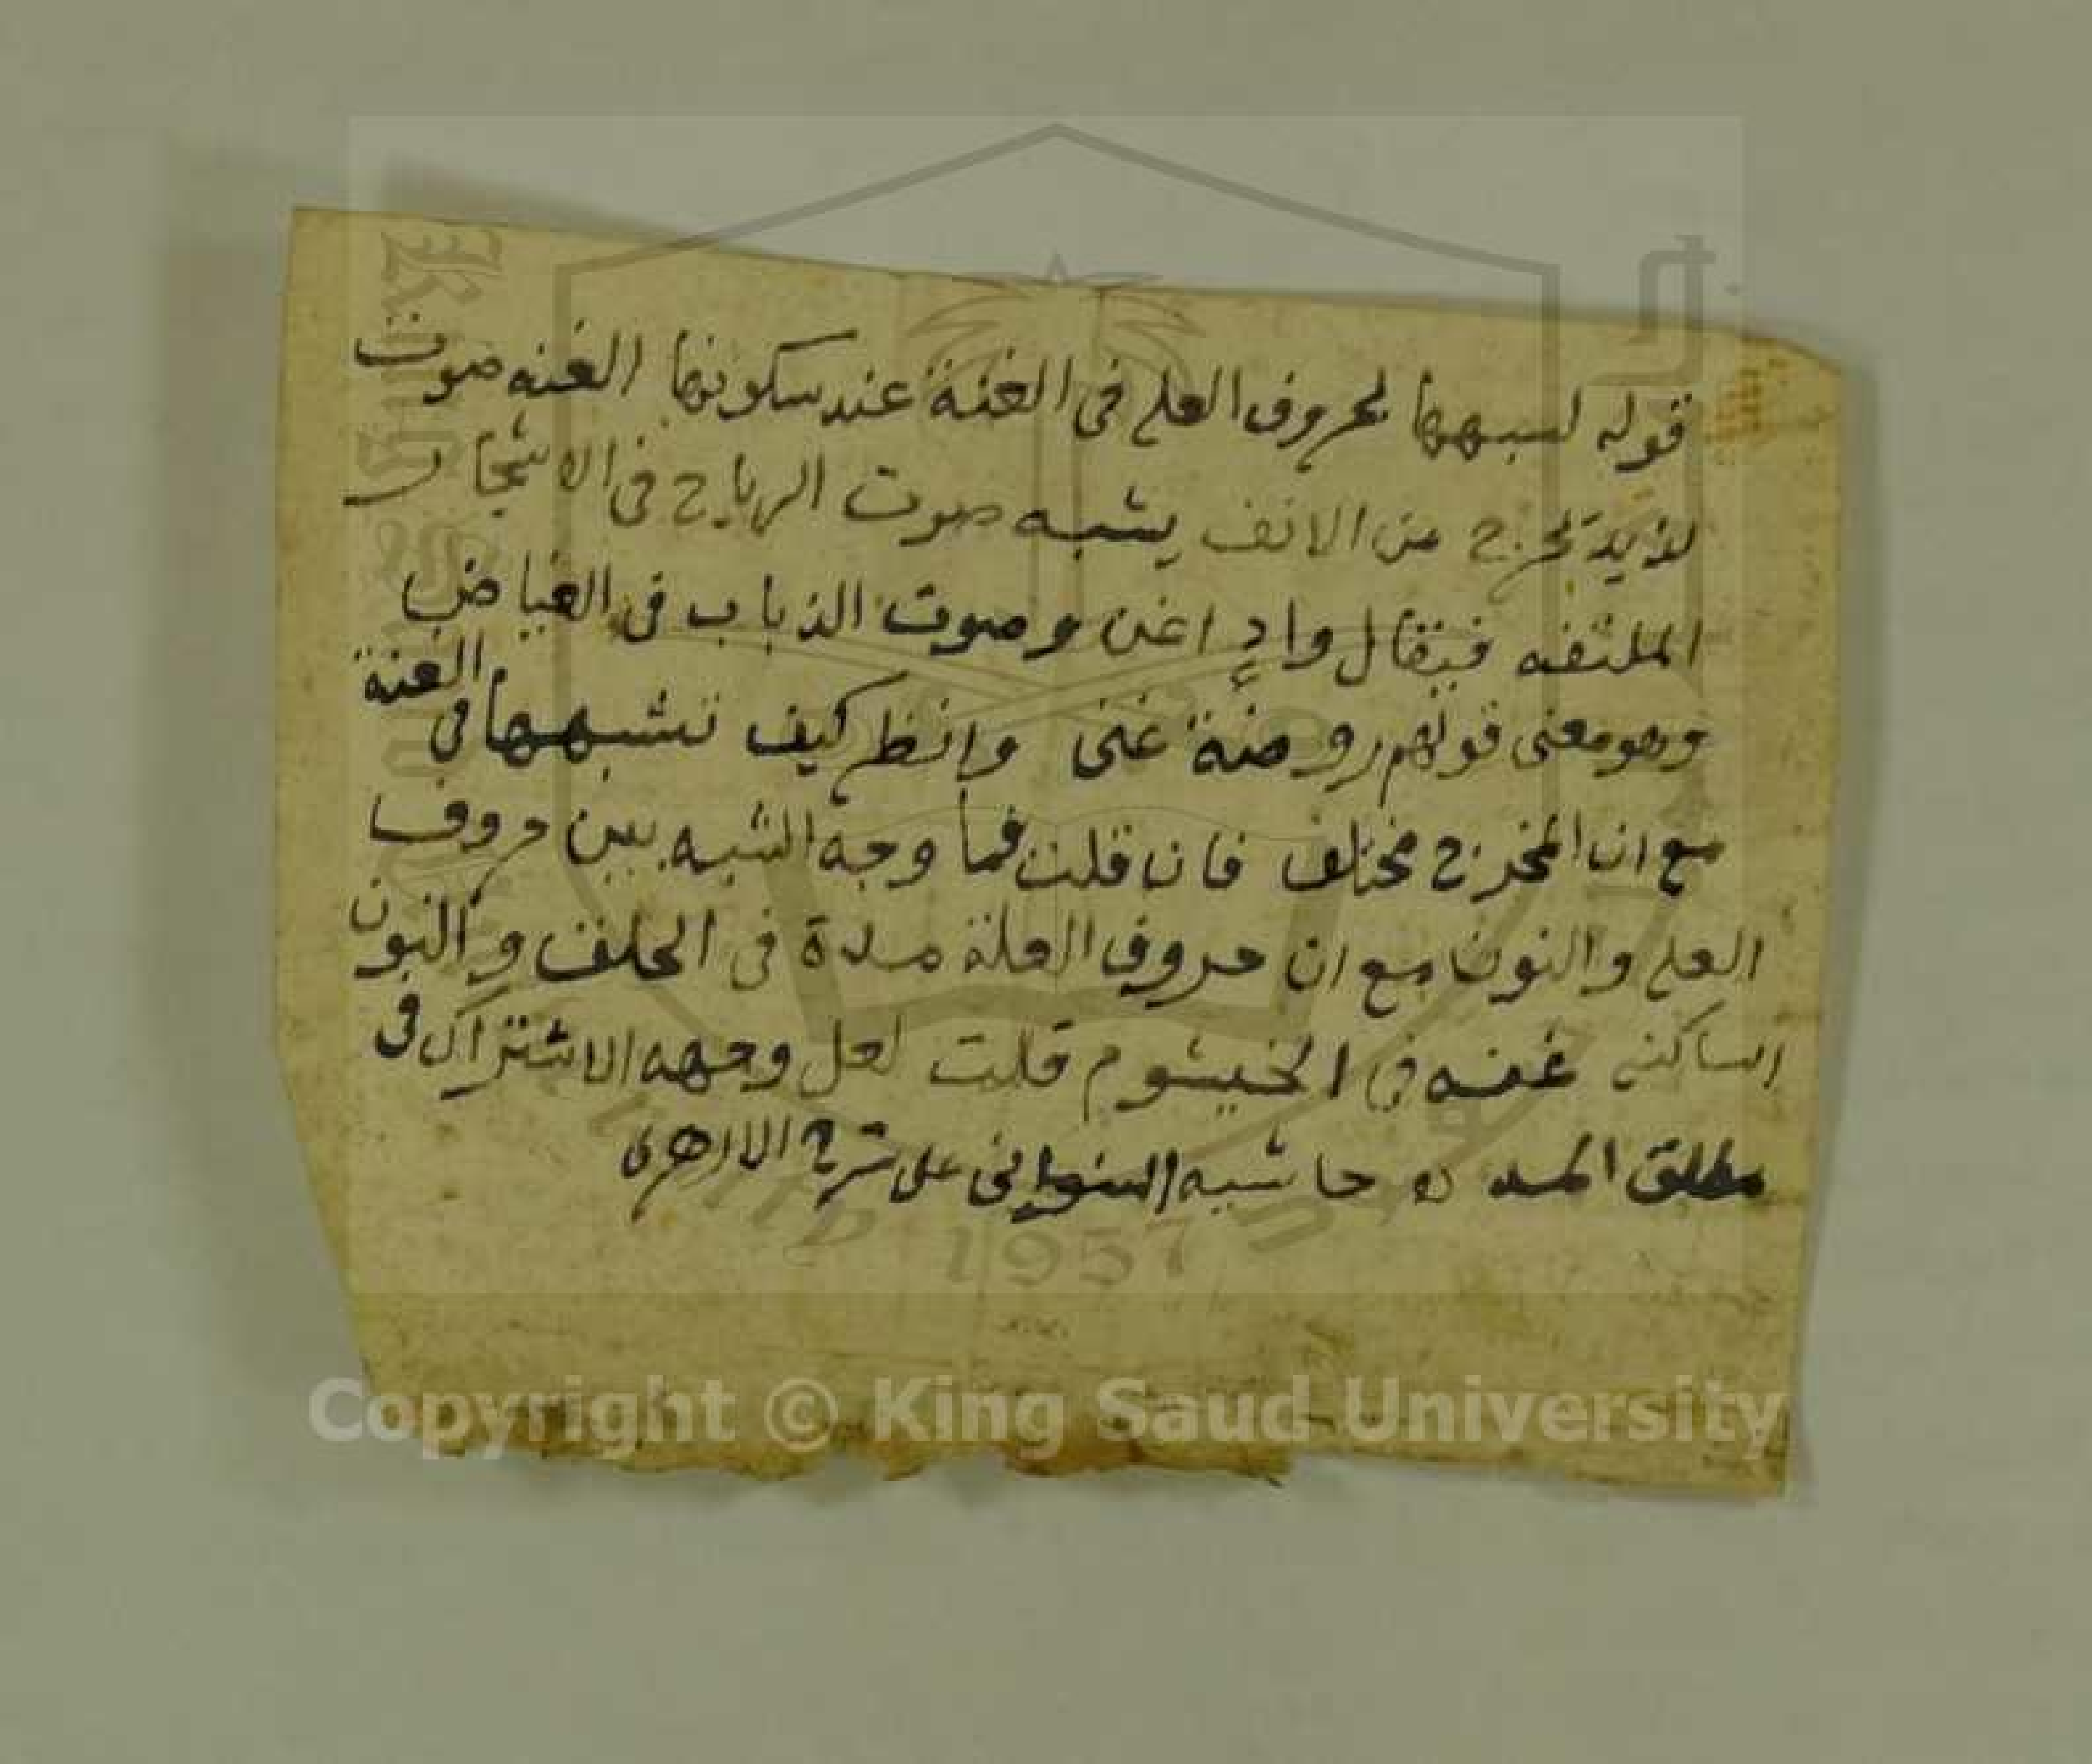 قوله لشبهها بحروف العلم في الغنة عند سكونها الغنه صوت
لذيذ تخرج من الانف يشبه صوت الرياح في الاشجار
الملتفه فيقال وادٍ اغن وصوت الذباب في الغياض
وهو معنى قولهم روضة غنى وانظر كيف تشبهها في الغنة
مع ان المخرج مختلف فان قلت فما وجه الشبه بين حروف
العلم والنون مع ان حروف العلة مدة في الحلق والنون
الساكنه غنه في الخيشوم قلت لعل وجهه الاشتراك في
مطلق المد حاشيه الشنواني على شرح الازهرى
Copyright © King Saud University
King Saud
1957